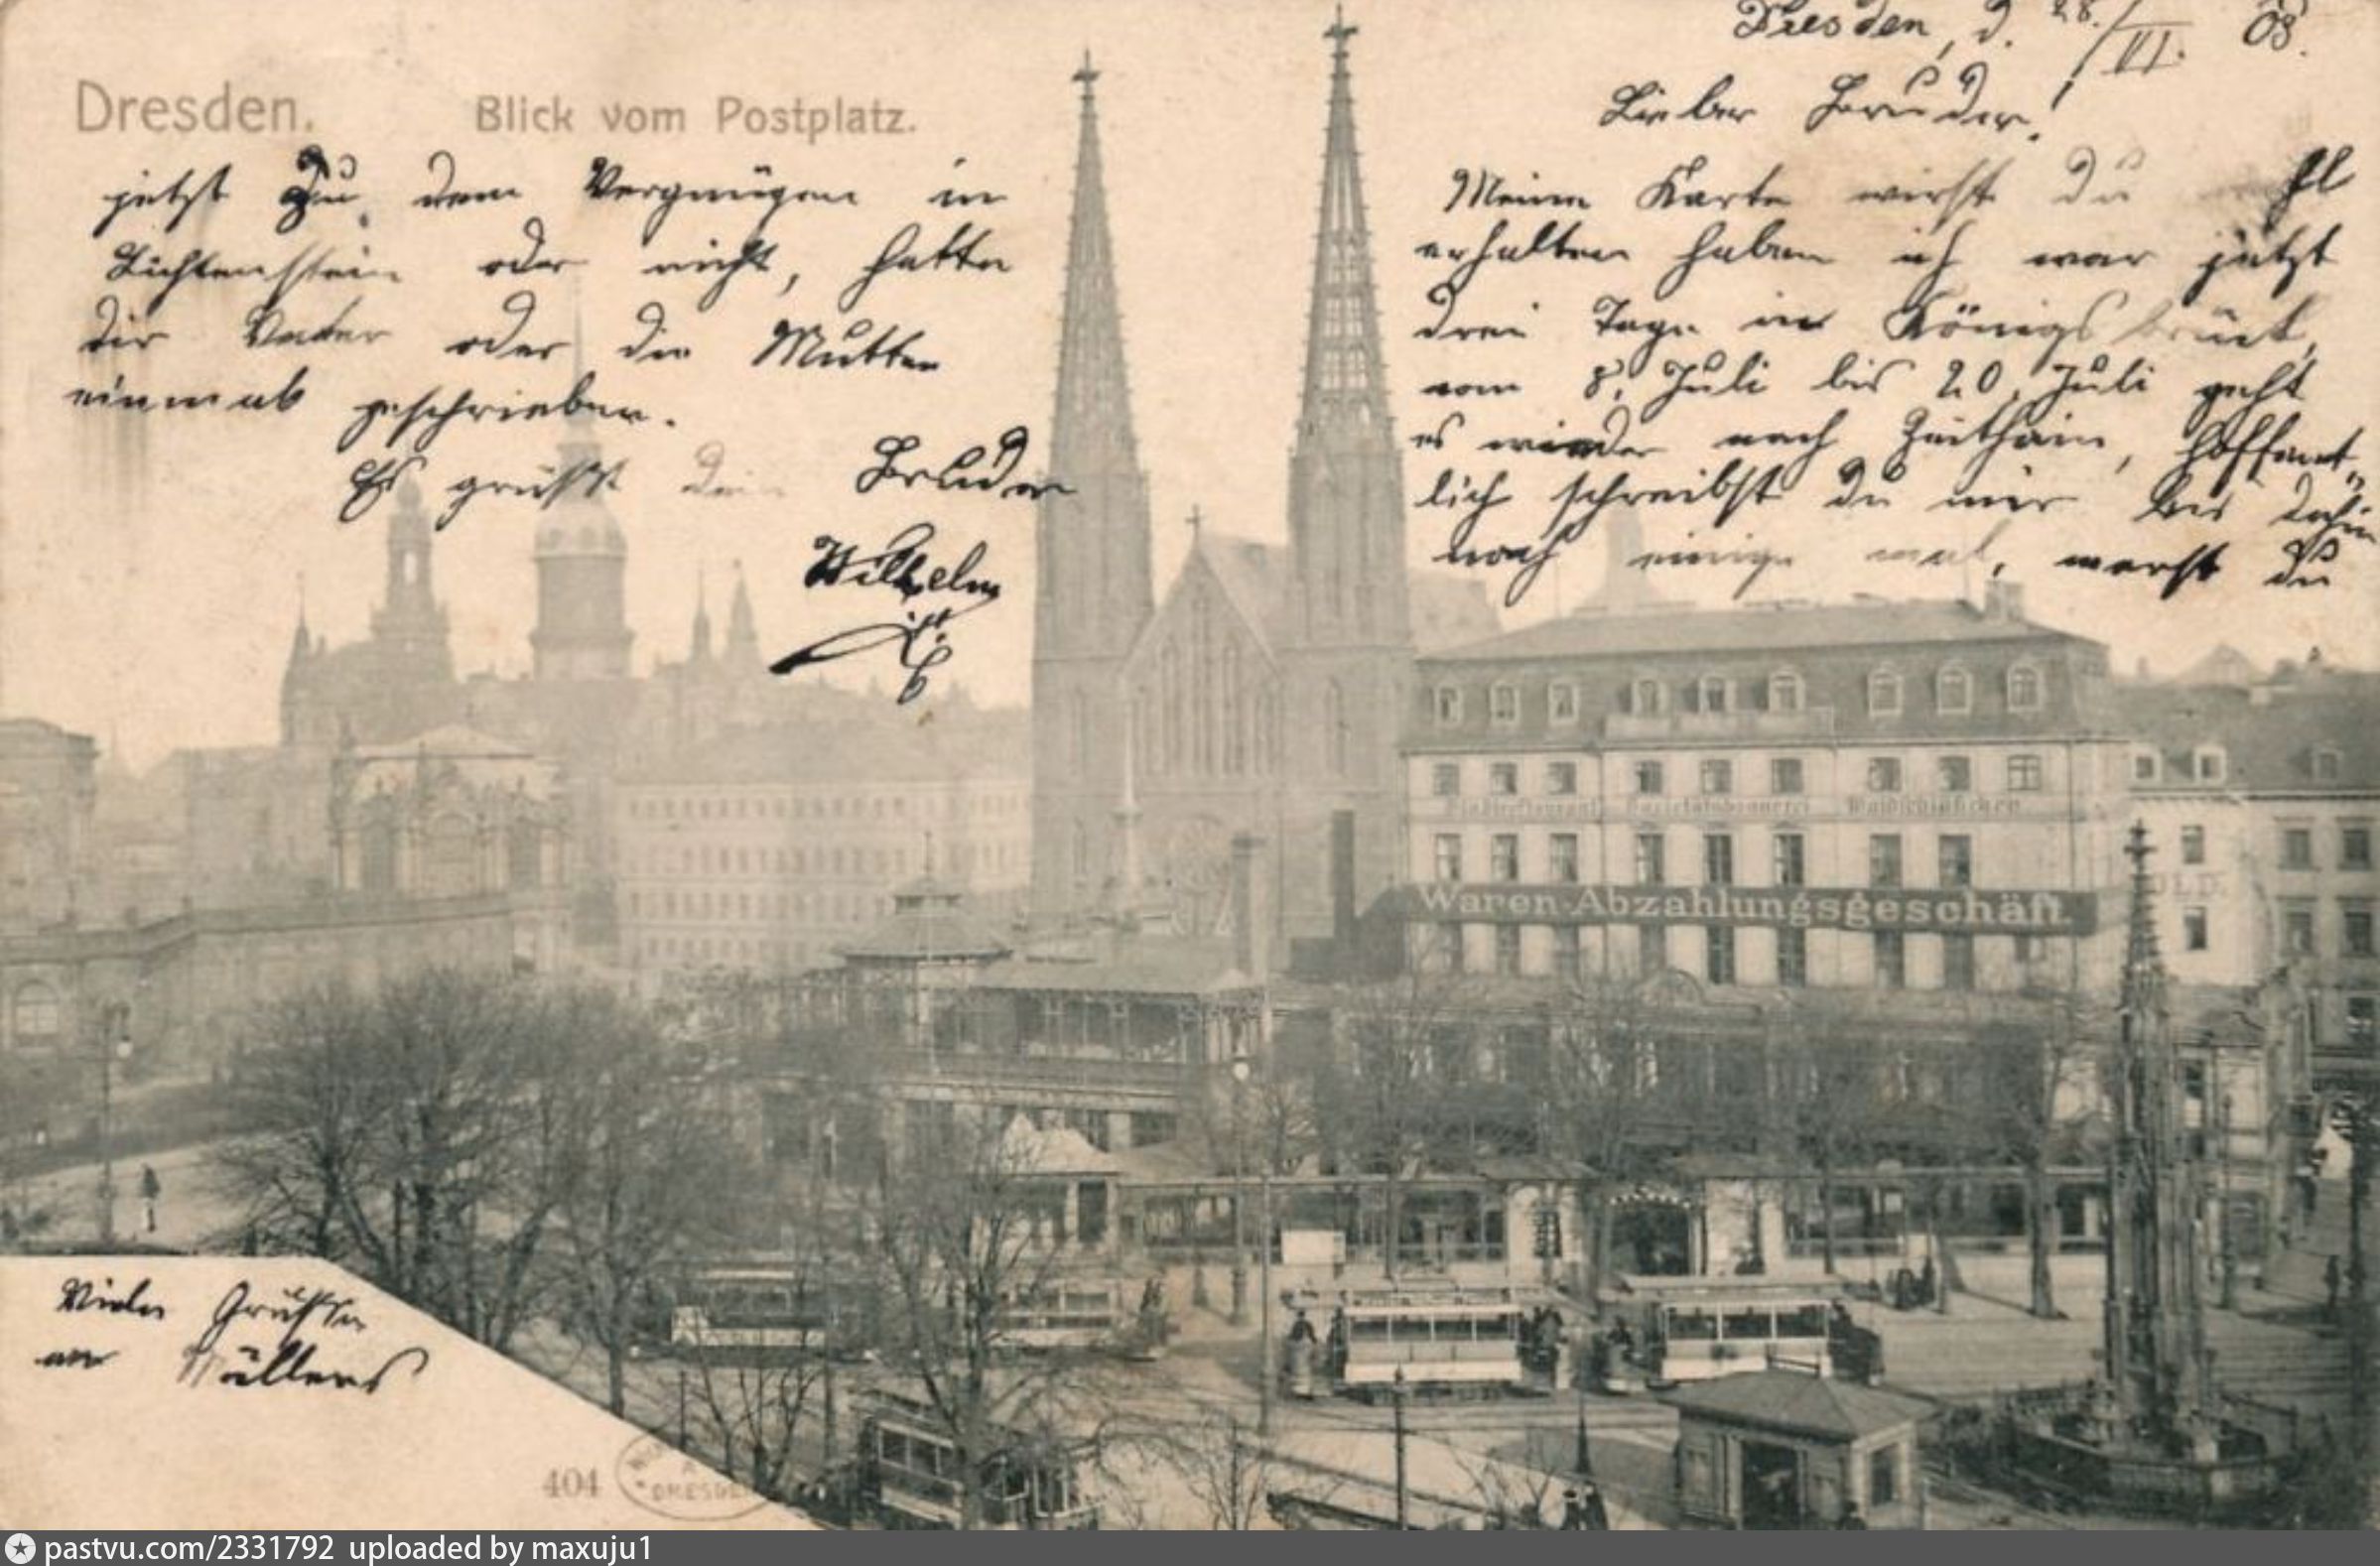 Dresden. Blick vom Postplatz.
Dresden, d. 28./VI. 08.
Lieber Bruder!
Meine Karte wirst du
erhalten haben ich war jetzt
drei Tage in Königsbrück,
vom 8. Juli bis 20. Juli geht
es wieder nach Zeithain, hoffent-
lich schreibst du mir bis dahin
noch einige mal, warst du
jetzt zu dem Vergnügen in
Lichtenstein oder nicht, hatte
dir Vater oder die Mutter
einmal geschrieben.
Es grüßt dein Bruder
Wilhelm
Viele Grüße
an Müllers
Stadtrestaurant Societätsbrauerei Waldschlößchen
Waren-Abzahlungsgeschäft.
404
DRESDEN
pastvu.com/2331792 uploaded by maxuju1